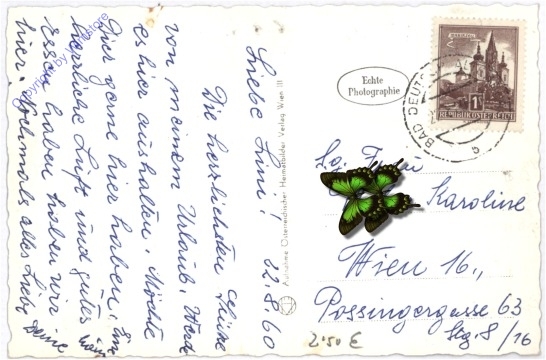 Liebe Lini! 22.8.60
Die herzlichsten Grüße
von meinem Urlaub. Werde
es hier aushalten. Möchte
Dier gerne hier haben. Eine
herrliche Luft und gutes
Essen haben wir
hier. Nochmals alles Liebe Deine
Copyright by
Aufnahme Österreichischer Heimatbilder Verlag Wien III
Echte
Photographie
MARIAZELL
1S
REPUBLIK ÖSTERREICH
BAD DEUTSCH
Karoline
Wien 16.,
Possingergasse 63
Stg. 8/16
2'50 €